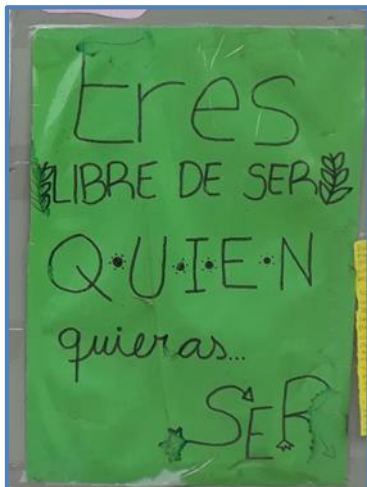 Eres
LIBRE DE SER
Q·U·I·E·N
quieras...
SER